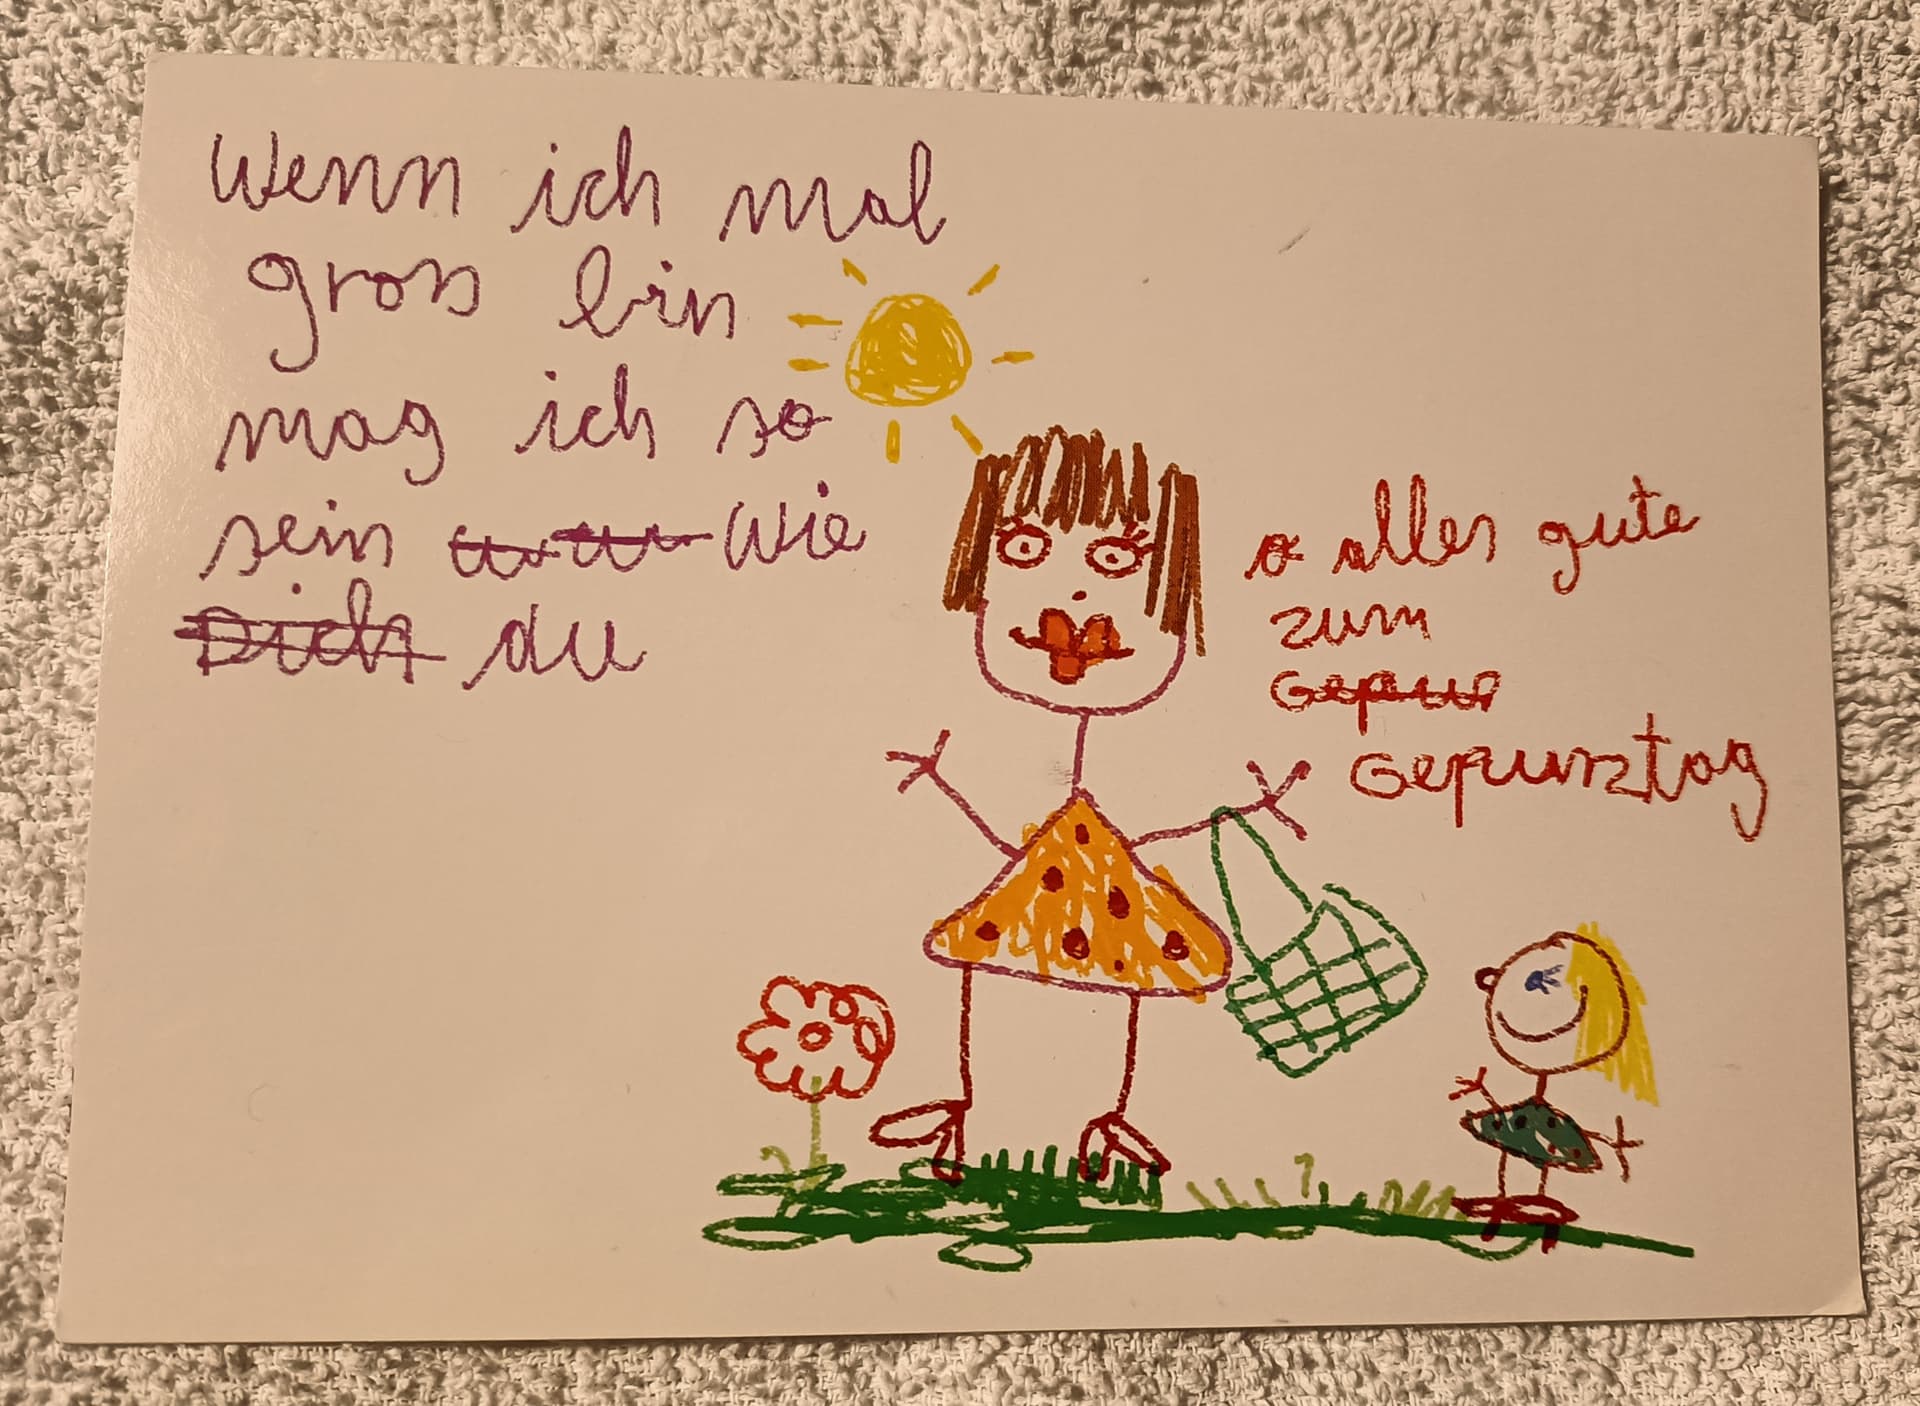 Wenn ich mal
gross bin
mag ich so
sein wie
Dich du
alles gute
zum
Gepur
Gepurztag